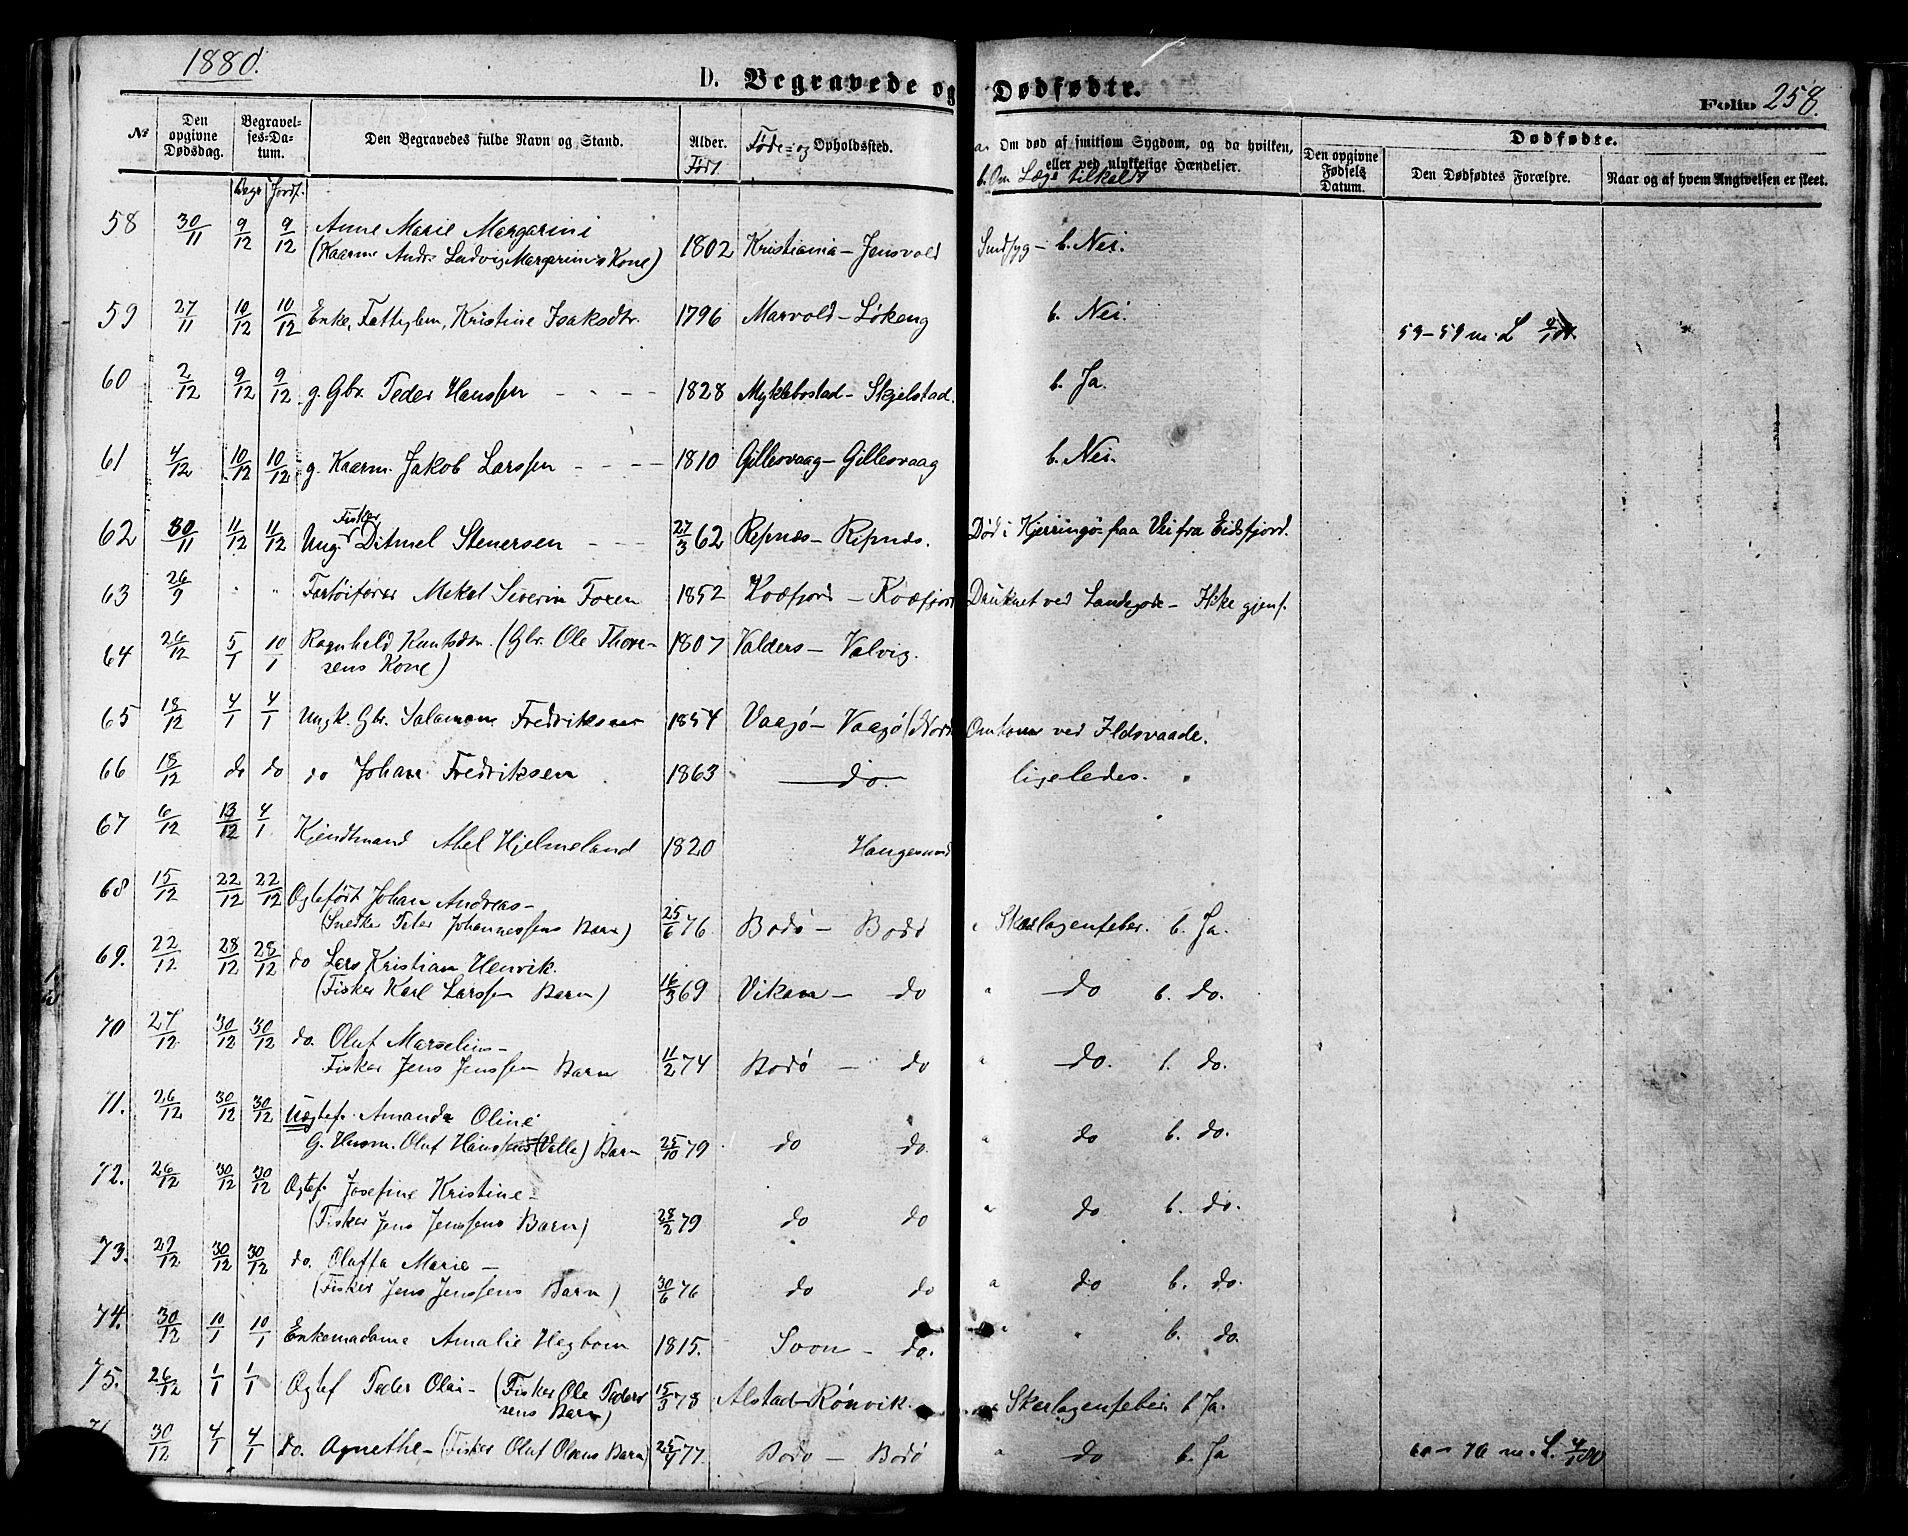 1880.
D. Begravede og Dødfødte.
Folio 258.
No
Den opgivne Dødsdag.
Begravelses-Datum.
Begr Jordf.
Den Begravedes fulde Navn og Stand.
Alder. Født
Føde- og Opholdssted.
a. Om død af smitsom Sygdom, og da hvilken, eller ved ulykkelige Hændelser.
b. Om Læge tilkaldt
Dødfødte.
Den opgivne Fødsels Datum.
Den Dødfødtes Forældre.
Naar og af hvem Angivelsen er skeet.
58 30/11 9/12 9/12 Anne Marie Margarini 1802 Kristiania - Jensvold b. Nei.
(Kaarm. Andr. Ludvig Margarinis Kone)
59 27/11 10/12 10/12 Enke, Fattiglem, Kristine Isaksdtr. 1796 Marvold - Løkeng b. Nei.
53-59 m. L
60 2/12 9/12 9/12 g. Gbr. Peder Hanssen - - - 1828 Myklebostad - Skjelstad. b. Ja.
61 4/12 10/12 10/12 g. Kaarm. Jakob Larssen - - - 1810 Gillesvaag - Gillesvaag b. Nei.
62 30/11 11/12 11/12 Ung. Fisker Ditmel Stenersen - - 27/3 62 Ripnæs - Ripnæs. Død i Kjerringø paa Vei fra Eidsfjord.
63 26/9 " " Fartøifører Mikal Severin Foren 1852 Kvæfjord - Kvæfjord Druknet ved Landegode - Ikke gjenf.
64 26/12 5/1 10/1 Ragnhild Knutsdtr. (Gbr. Ole Thore- 1807 Valders - Valvig.
sens Kone)
65 18/12 4/1 4/1 Ungk. Gbr. Salamon Fredriksen 1854 Vaagø - Vaagø (Nord Omkom ved Ildsvaade.
66 18/12 do do do Johan Fredriksen 1863 do. ligeledes.
67 6/12 13/12 4/1 Kjendtmand Abel Hjelmeland 1820 Haugesund
68 15/12 22/12 22/12 Ogtefødt Johan Andreas -
(Snedker Peter Johannessens Barn) 25/6 76 Bodø - Bodø Skarlagensfeber. b. Ja.
69. 22/12 28/12 28/12 do Lars Kristian Henrik.
(Fisker Karl Larssen Barn) 16/3 69 Vikan - do " do b. do.
70 27/12 30/12 30/12 do. Oluf Marselius -
Fisker Jens Jenssen Barn 11/2 74 Bodø - do " do. b. do.
71. 26/12 30/12 30/12 Uægtef. Amanda Oline
G. Husm. Oluf Hanssens (Valle) Barn 25/10 79 do do. " do b. do.
72. 26/12 30/12 30/12 Ogtef. Josefine Kristine -
(Fisker Jens Jenssens Barn) 28/2 79 do do " do b. do.
73. 27/12 30/12 30/12 do. Oluffa Marie -
(Fisker Jens Jenssens Barn) 30/6 76 do do a do b. do.
74. 30/12 10/1 10/1 Enkemadame Amalie Hegbom 1815. Svon - do. " " b. do.
75. 26/12 1/1 1/1 Ogtef Peder Olai - (Fisker Ole Peder- 15/3 73 Alstad - Rønvik. Skarlagensfeber b Ja.
sens Barn)
30/12 4/1 4/1 do. Agnethe - (Fisker Oluf Olsens Barn) 25/4 77. Bodø - Bodø " do b. Ja
60 - 76 m. L.